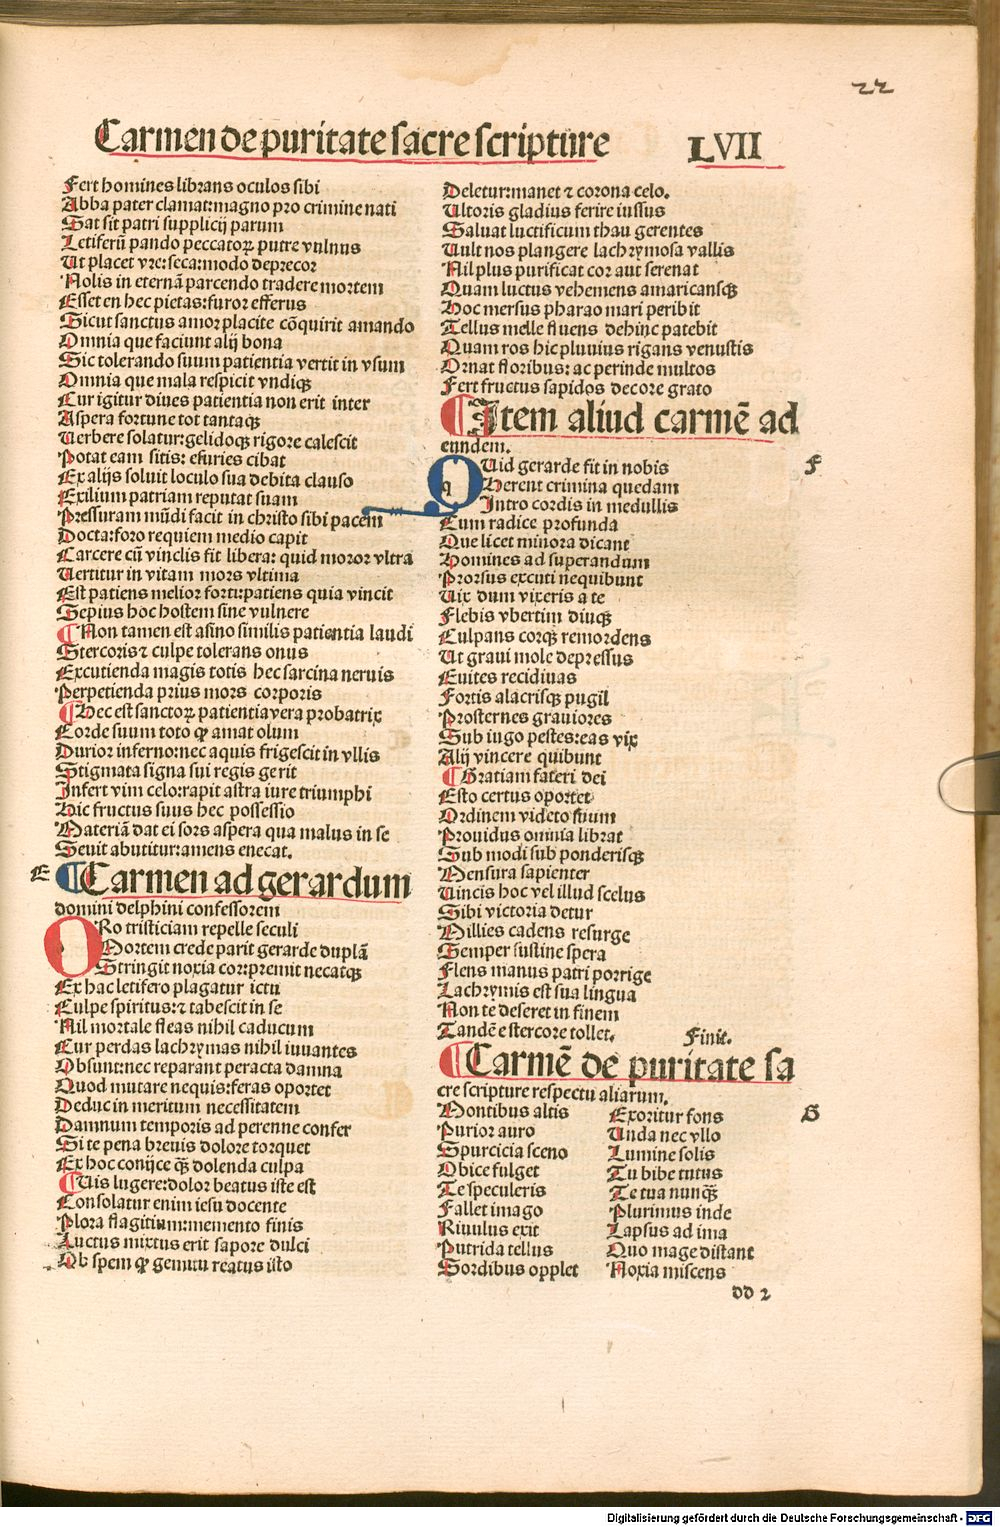 22
Carmen de puritate sacre scripture LVII
Fert homines librans oculos sibi
Abba pater clamat:magno pro crimine nati
Sat sit patri supplicij parum
Letiferū pando peccatoꝝ putre vulnus
Ut placet vre:seca:modo deprecor
Nolis in eternā parcendo tradere mortem
Esset en hec pietas:furor efferus
Sicut sanctus amor placite cōquirit amando
Omnia que faciunt alij bona
Sic tolerando suum patientia vertit in vsum
Omnia que mala respicit vndiqꝫ
Cur igitur diues patientia non erit inter
Aspera fortune tot tantaqꝫ
Uerbere solatur:gelidoqꝫ rigore calescit
Potat eam sitis: esuries cibat
Ex alijs soluit loculo sua debita clauso
Exilium patriam reputat suam
Pressuram mūdi facit in christo sibi pacem
Docta:foro requiem medio capit
Carcere cū vinclis fit libera: quid moror vltra
Uertitur in vitam mors vltima
Est patiens melior forti:patiens quia vincit
Sepius hoc hostem sine vulnere
¶ Non tamen est asino similis patientia laudi
Stercoris⁊ culpe tolerans onus
Excutienda magis totis hec sarcina neruis
Perpetienda prius mors corporis
¶ Hec est sanctoꝝ patientia vera probatrix
Corde suum toto ꝙ amat olum
Durior inferno:nec aquis frigescit in vllis
Stigmata signa sui regis gerit
Infert vim celo:rapit astra iure triumphi
Hic fructus suus hec possessio
Materiā dat ei sors aspera qua malus in se
Seuit abutitur:amens enecat.
E ¶ Carmen ad gerardum
domini delphini confessorem
ORo tristiciam repelle seculi
Mortem crede parit gerarde duplā
Stringit noxia corrpremit necatqꝫ
Ex hac letifero plagatur ictu
Culpe spiritus:⁊ tabescit in se
Nil mortale fleas nihil caducum
Cur perdas lachrymas nihil iuuantes
Obsunt:nec reparant peracta damna
Quod mutare nequis:feras oportet
Deduc in meritum necessitatem
Damnum temporis ad perenne confer
Si te pena breuis dolore torquet
Ex hoc conijce qꝫ dolenda culpa
¶ Uis lugere:dolor beatus iste est
Consolatur enim iesu docente
Plora flagitium:memento finis
Luctus mixtus erit sapore dulci
Ob spem ꝙ gemitu reatus isto
Deletur:manet ⁊ corona celo.
Ultoris gladius ferire iussus
Saluat luctificum thau gerentes
Uult nos plangere lachrymosa vallis
Nil plus purificat cor aut serenat
Quam luctus vehemens amaricansqꝫ
Hoc mersus pharao mari peribit
Tellus melle fluens dehinc patebit
Quam ros hic pluuius rigans venustis
Ornat floribus: ac perinde multos
Fert fructus sapidos decore grato
¶ Item aliud carmē ad
eundem.
F
QUid gerarde fit in nobis
Herent crimina quedam
Intro cordis in medullis
Cum radice profunda
Que licet minora dicant
Homines ad superandum
Prorsus excuti nequibunt
Uix dum vixeris a te
Flebis vbertim diuqꝫ
Culpans corqꝫ remordens
Ut graui mole depressus
Euites recidiuas
Fortis alacrisqꝫ pugil
Prosternes grauiores
Sub iugo pestes:eas vix
Alij vincere quibunt
¶ Gratiam fateri dei
Esto certus oportet
Ordinem videto suum
Prouidus omnia librat
Sub modi sub ponderisqꝫ
Mensura sapienter
Uincis hoc vel illud scelus
Sibi victoria detur
Millies cadens resurge
Semper sustine spera
Flens manus patri porrige
Lachrymis est sua lingua
Non te deseret in finem
Tandē e stercore tollet. Finit.
¶ Carmē de puritate sa
cre scripture respectu aliarum.
G
Montibus altis
Purior auro
Spurcicia sceno
Obice fulget
Te speculeris
Fallet imago
Riuulus exit
Putrida tellus
Sordibus opplet
Exoritur fons
Unda nec vllo
Lumine solis
Tu bibe tutus
Te tua nunqꝫ
Plurimus inde
Lapsus ad ima
Quo mage distant
Noxia miscens
dd 2
Digitalisierung gefördert durch die Deutsche Forschungsgemeinschaft - DFG